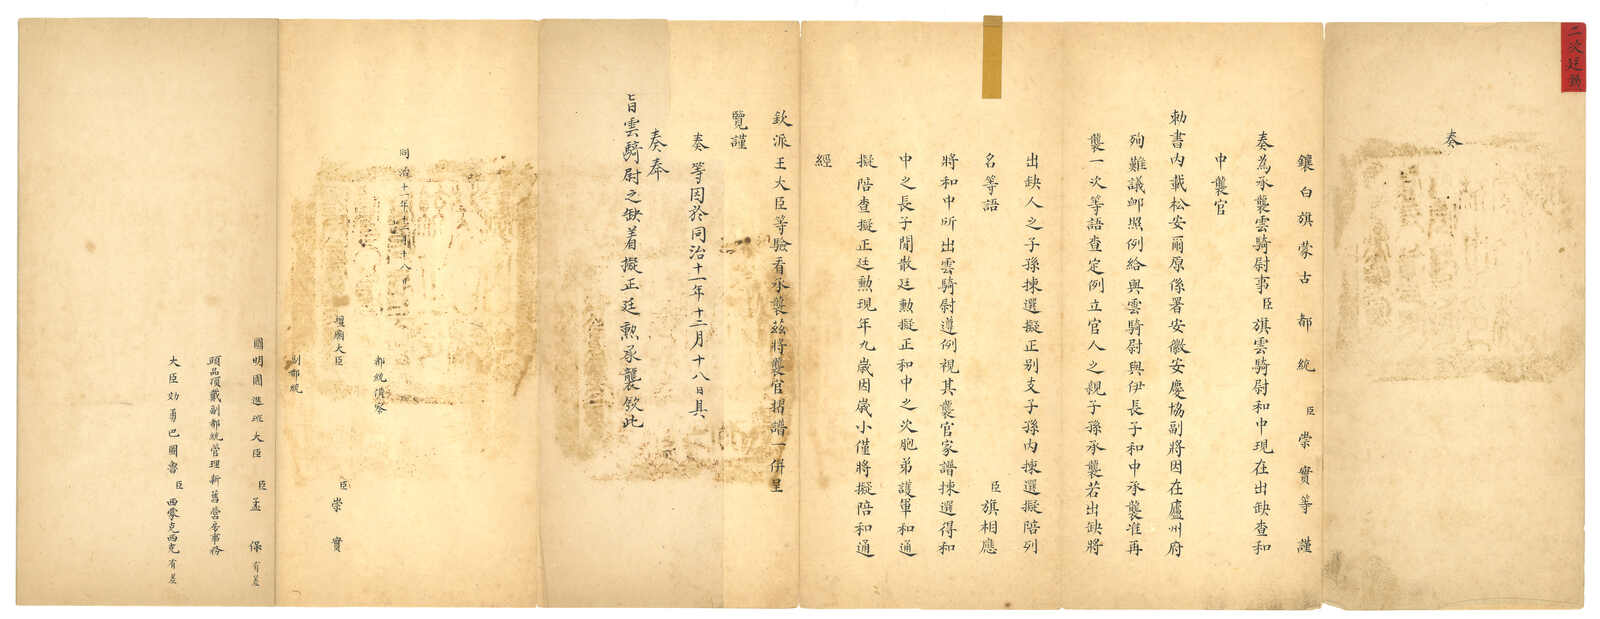 二次廷勳
奏
鑲白旗蒙古都統臣崇實等謹
奏為承襲雲騎尉事臣旗雲騎尉和中現在出缺查和
中襲官
勅書內載松安爾原係署安徽安慶協副將因在廬州府
殉難議卹照例給與雲騎尉與伊長子和中承襲准再
襲一次等語查定例立官人之親子孫承襲若出缺將
出缺人之子孫揀選擬正別支子孫內揀選擬陪列
名等語臣旗相應
將和中所出雲騎尉遵例視其襲官家譜揀選得和
中之長子閒散廷勳擬正和中之次胞弟護軍和通
擬陪查擬正廷勳現年九歲因歲小僅將擬陪和通
經
欽派王大臣等驗看承襲茲將襲官摺譜一併呈
覽謹
奏等因於同治十一年十二月十八日具
奏奉
旨雲騎尉之缺着擬正廷勳承襲欽此
同治十一年十二月十八日
都統
壇廟大臣臣崇實
副都統
圖明圖進班大臣臣孟保有差
頭品頂戴副都統管理新舊營房事務
大臣効勇巴圖魯臣西蒙克西克有差